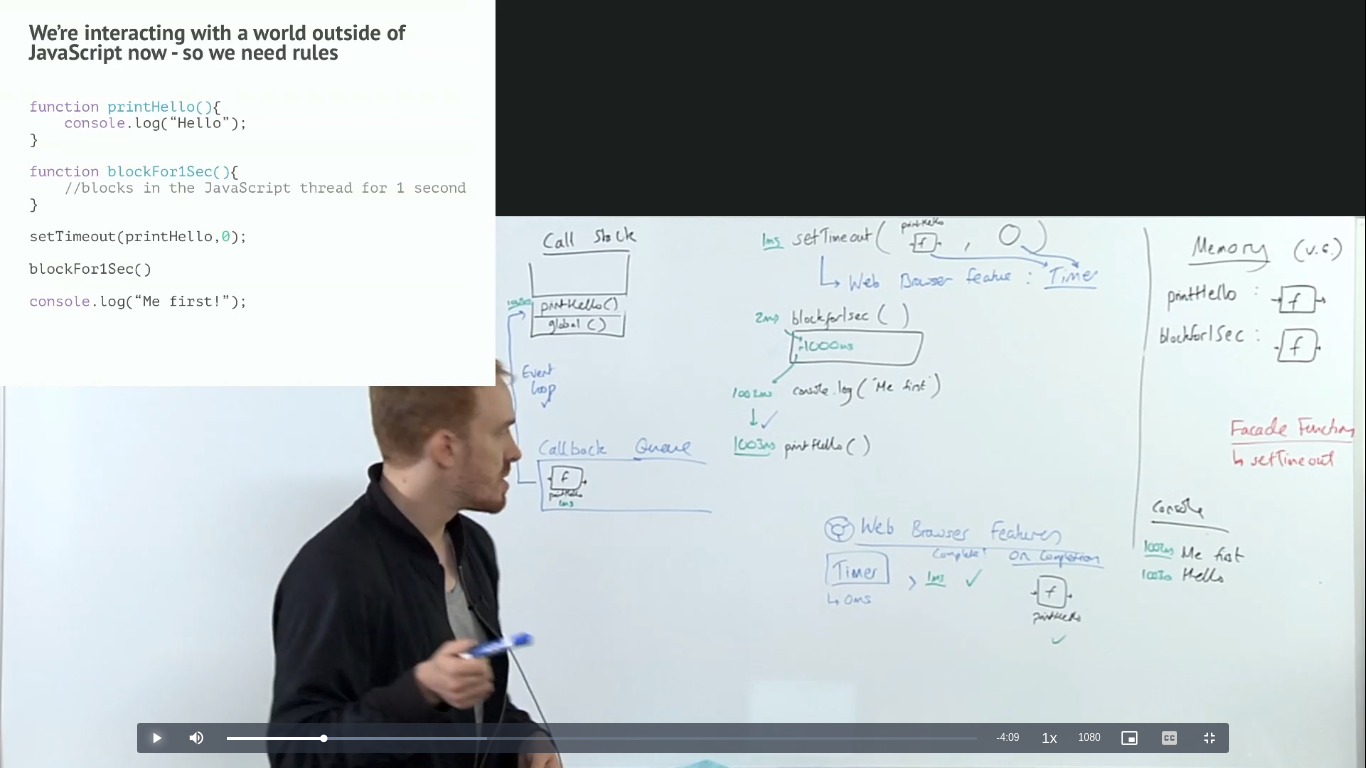 We're interacting with a world outside of
JavaScript now - so we need rules
function printHello(){
console.log(“Hello”);
}
function blockFor1Sec(){
//blocks in the JavaScript thread for 1 second
}
setTimeout(printHello,0);
blockFor1Sec()
console.log(“Me first!”);
Call Stack
printHello()
global()
Event
loop
Callback Queue
f
printHello
1ms
1ms setTimeout( printHello f , 0 )
Web Browser feature : Timer
2ms blockfor1sec ( )
1000ms
1002ms console.log("Me first")
1003ms printHello()
Web Browser Features
Timer
0ms
Complete?
1ms
On Completion
f
printHello
Memory (v.e.)
printHello : f
blockfor1Sec : f
Facade Function
setTimeout
Console
1002ms Me first
1003ms Hello
-4:09
1x
1080
CC